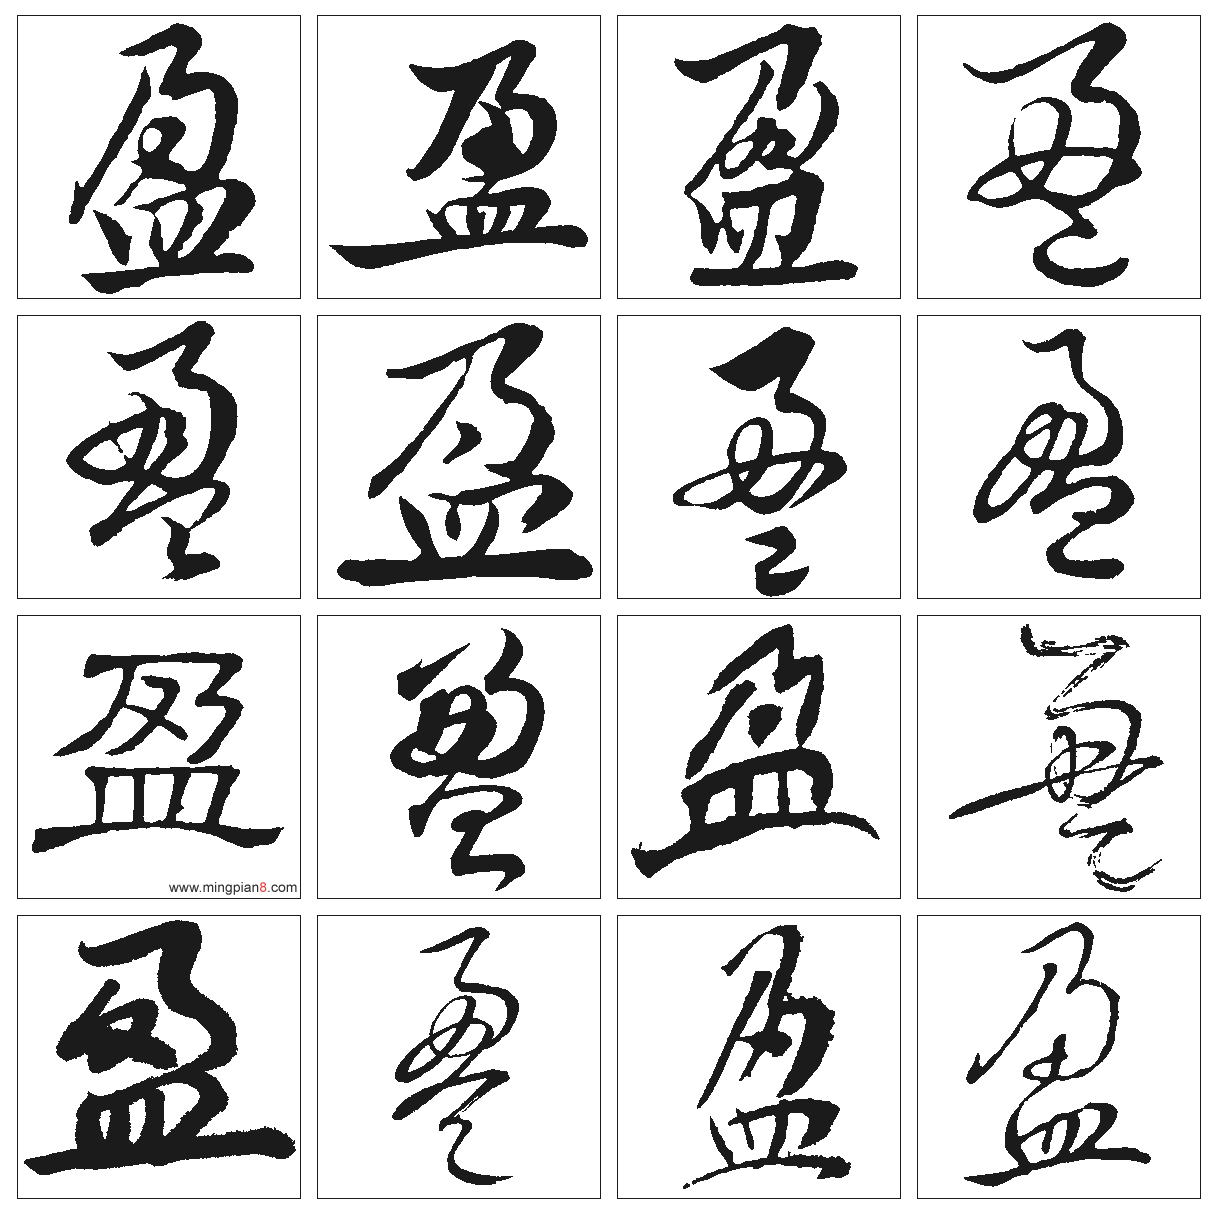 盈 盈 盈 盈
盈 盈 盈 盈
盈 盈 盈 盈
www.mingpian8.com
盈 盈 盈 盈